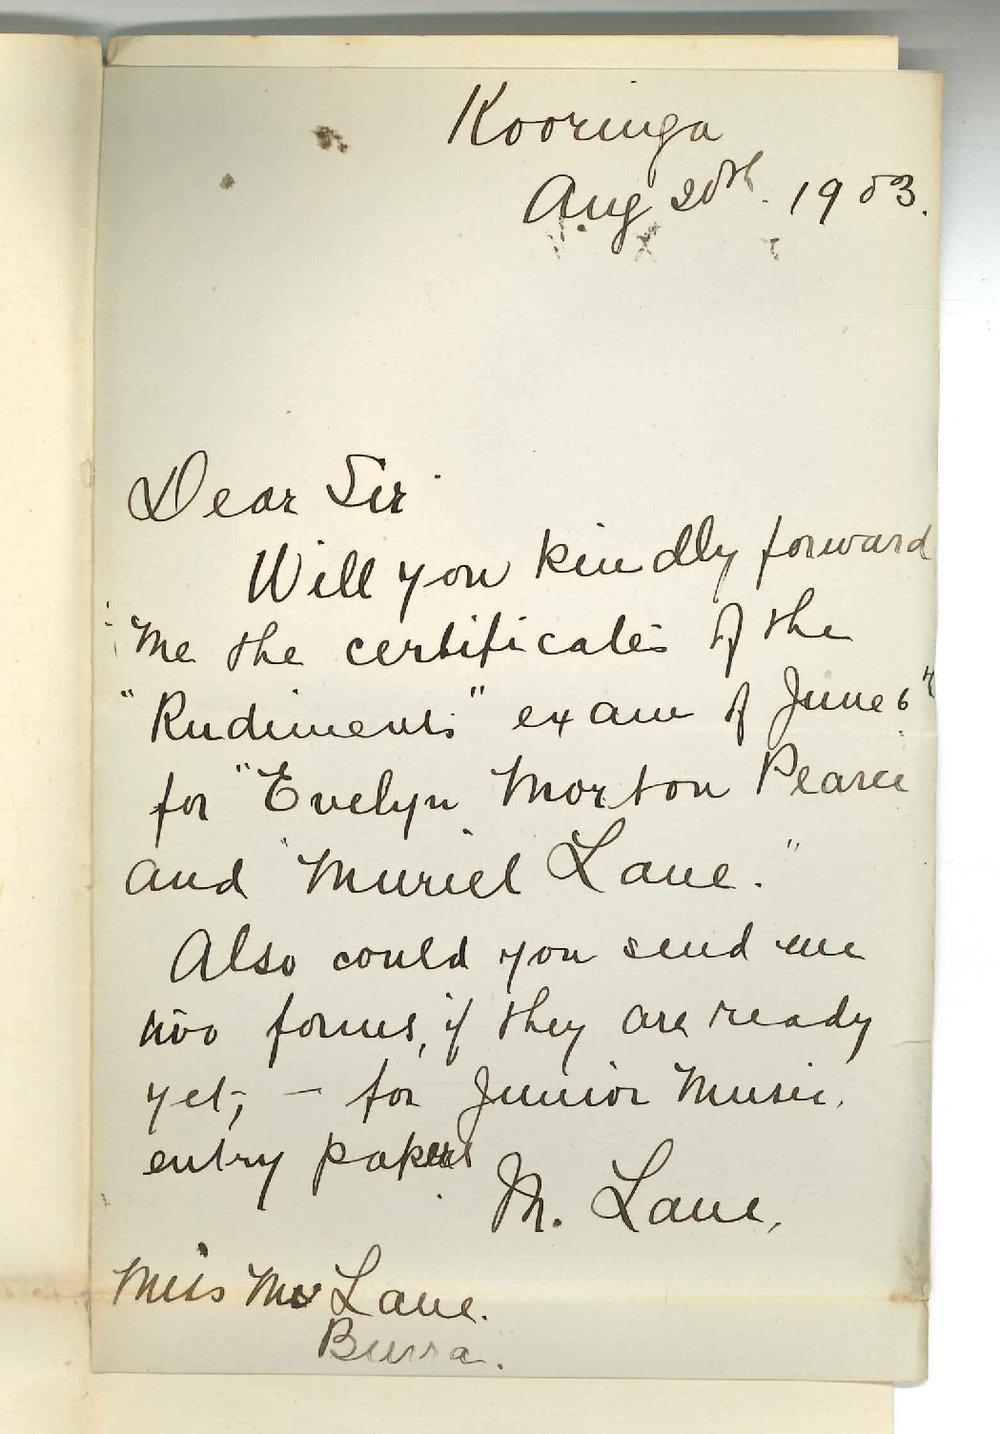 Kooringa
Aug 20th. 1903.
Dear Sir
Will you kindly forward
me the certificates of the
"Rudiments" exam of June 6th
for "Evelyn Morton Pearce
and "Muriel Lane."
Also could you send me
two forms, if they are ready
yet, – for Junior Music.
entry papers
M. Lane,
Miss M Lane.
Burra.